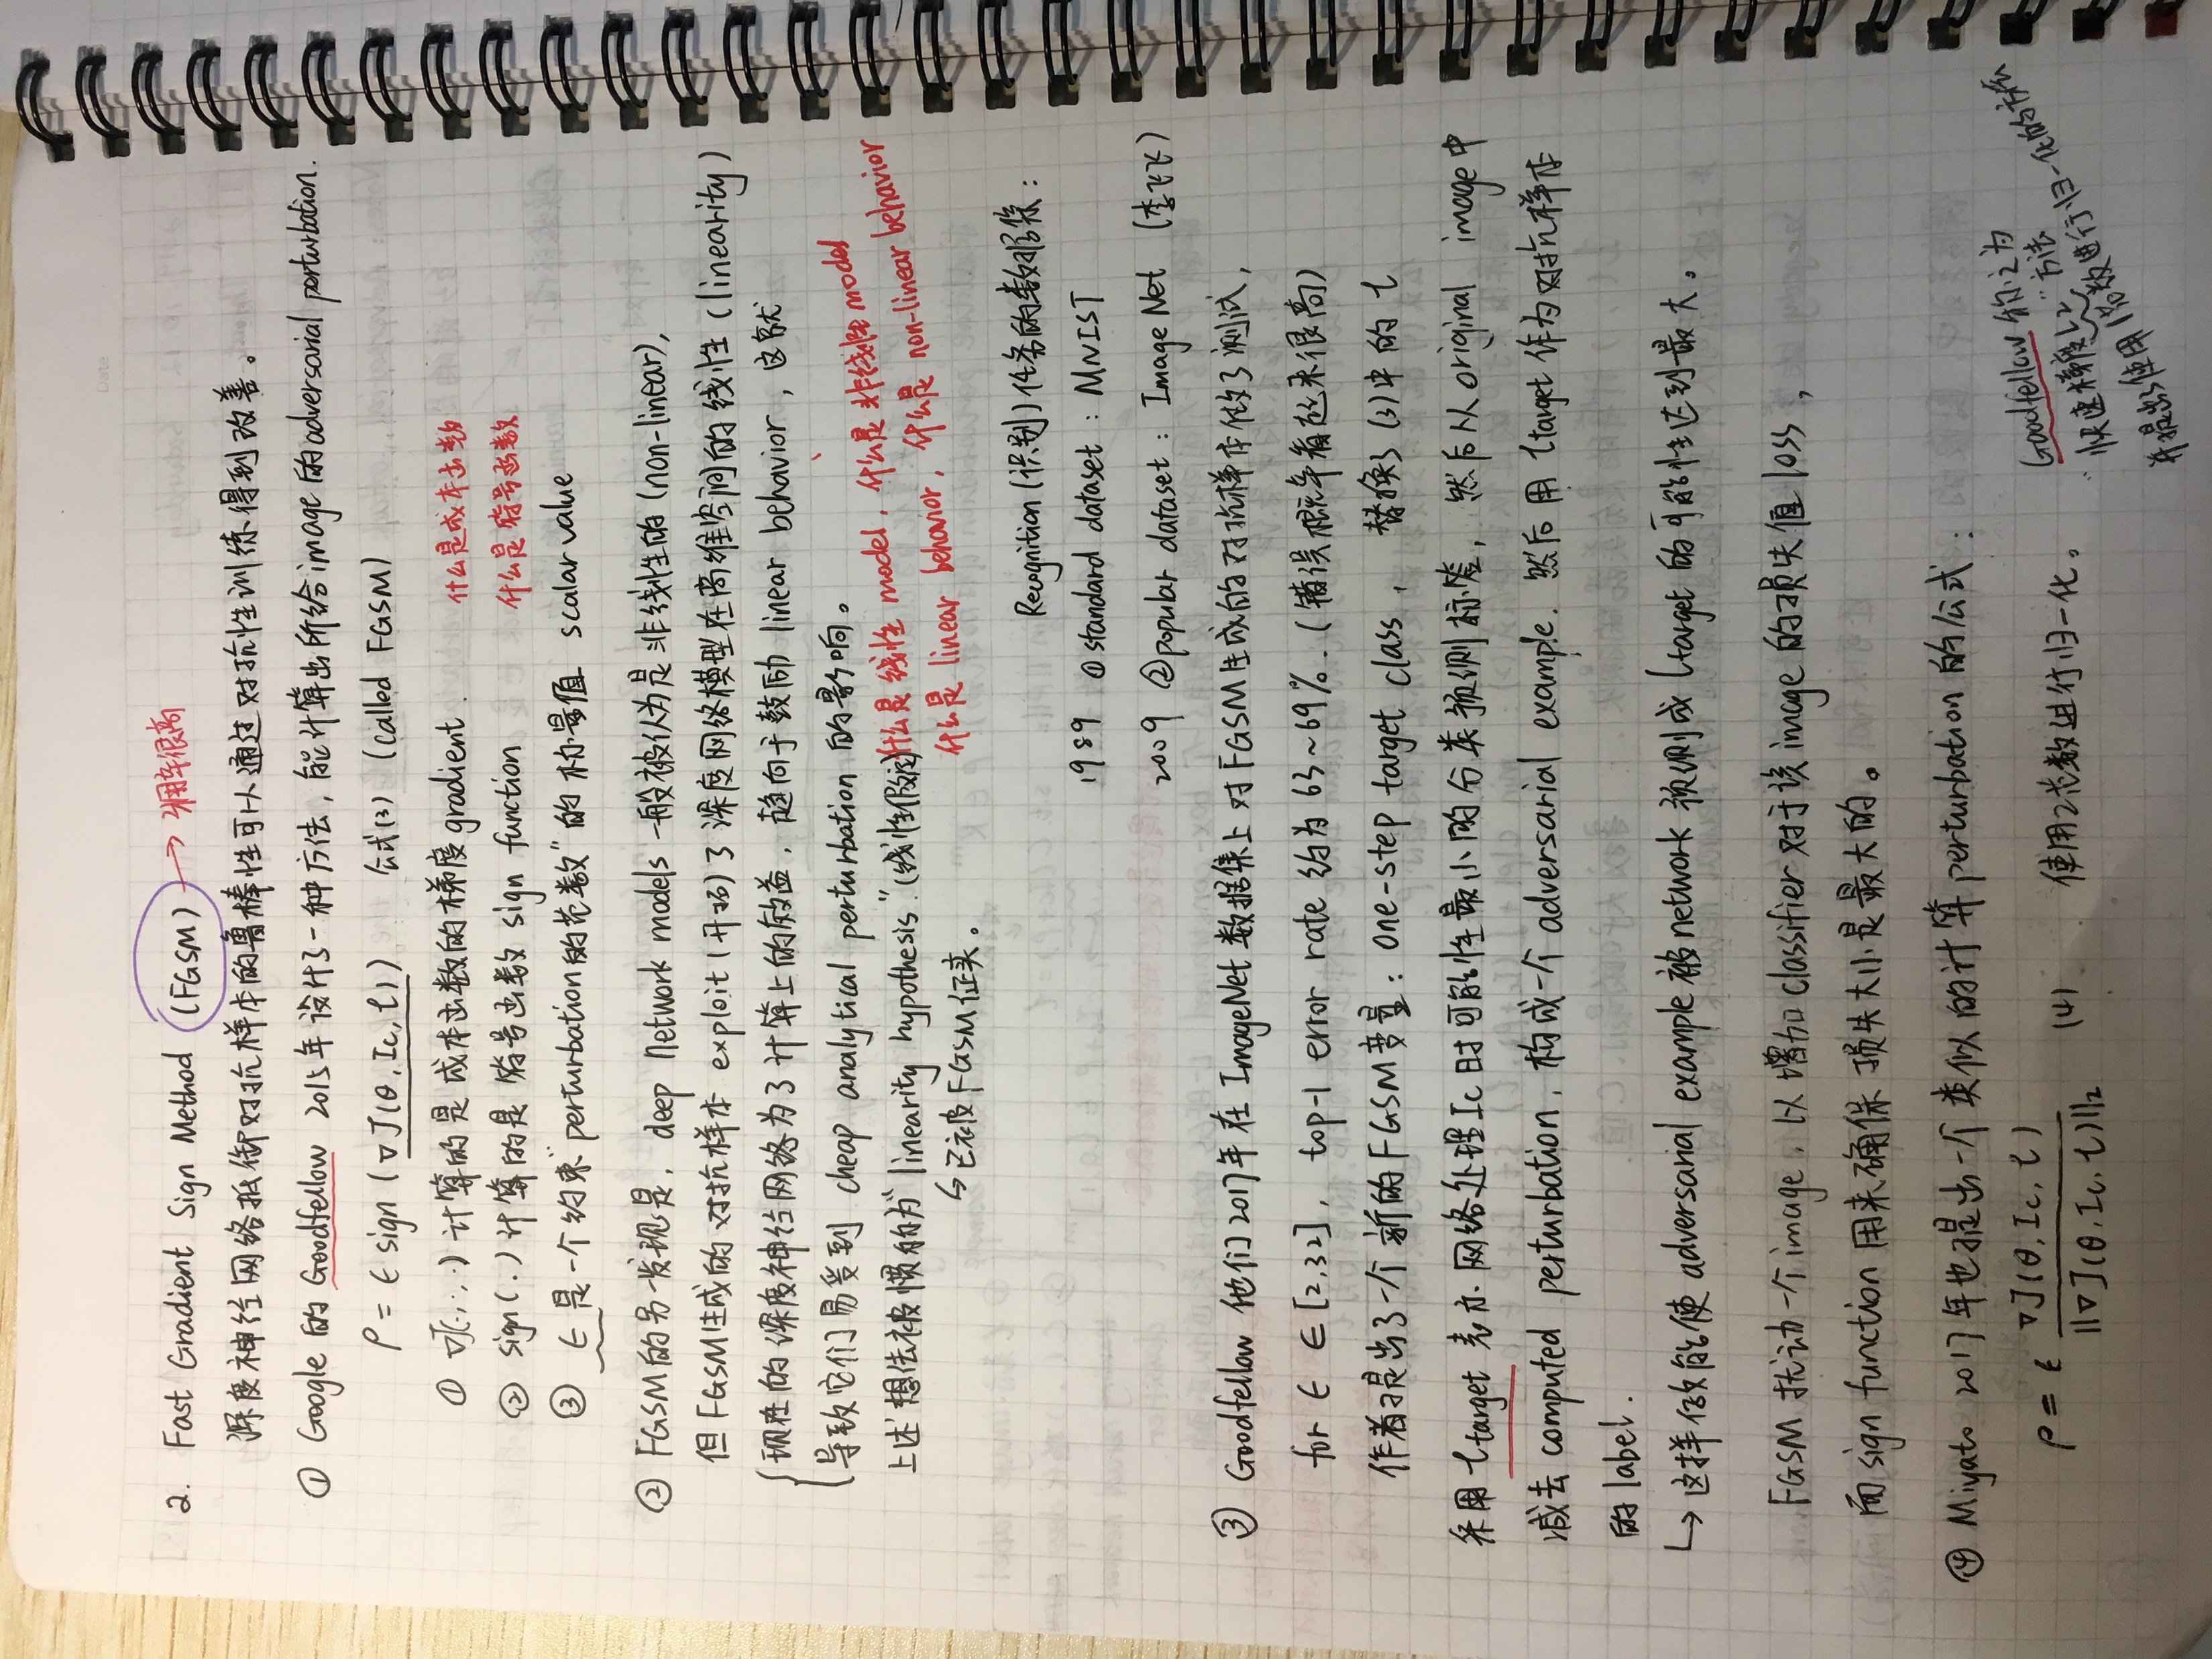 Date
2. Fast Gradient Sign Method (FGSM) → 拥率很高
深度神经网络抵御对抗样本的鲁棒性可以通过对抗性训练得到改善。
① Google 的 Goodfellow 2015年设计了一种方法, 能计算出所给image的adversarial perturbation.
ρ = ϵ sign (∇J(θ, Ic, ℓ)) 公式(3) (called FGSM)
① ∇J(·,·,·) 计算的是成本函数的梯度 gradient. 什么是成本函数
② sign(·) 计算的是符号函数 sign function 什么是符号函数
③ ϵ 是一个约束"perturbation的范数"的标量值 scalar value
② FGSM的另一发现是, deep Network models 一般被认为是非线性的 (non-linear),
但FGSM生成的对抗样本 exploit (开拓) 了深度网络模型在高维空间的线性 (linearity)
现在的深度神经网络为了计算上的效益, 趋向于鼓励 linear behavior, 这就
导致它们易受到 cheap analytical perturbation 的影响。
上述想法被惯称为"linearity hypothesis" (线性假说)
什么是线性 model, 什么是非线性 model
什么是 linear behavior, 什么是 non-linear behavior
↳ 已被FGSM证实。
Recognition (识别) 任务的数据集:
1989 ① standard dataset: MNIST
2009 ② popular dataset: ImageNet (李飞飞)
③ Goodfellow 他们2017年在 ImageNet 数据集上对FGSM生成的对抗样本做了测试,
for ϵ ∈ [2,32], top-1 error rate 约为 63~69%. (错误概率看起来很高)
作者提出了一个新的FGSM变量: one-step target class, 替换了(3)中的 ℓ
采用 ℓtarget 表示网络处理Ic时可能性最小的分类预测标签, 然后从 original image 中
减去 computed perturbation, 构成一个 adversarial example. 然后用 ℓtarget 作为对抗样本
的 label.
↳ 这样做能使 adversarial example 被 network 预测成 ℓtarget 的可能性达到最大。
FGSM 扰动一个 image, 以增加 classifier 对于该 image 的损失值 loss,
而 sign function 用来确保损失大小是最大的。
④ Miyato 2017年也提出一个类似的计算 perturbation 的公式:
ρ = ϵ ∇J(θ, Ic, ℓ) / ||∇J(θ, Ic, ℓ)||₂ (4) 使用2范数进行归一化。
Goodfellow 称之为
"快速梯度L2"方法
并提出使用 l∞ 范数进行归一化的方法